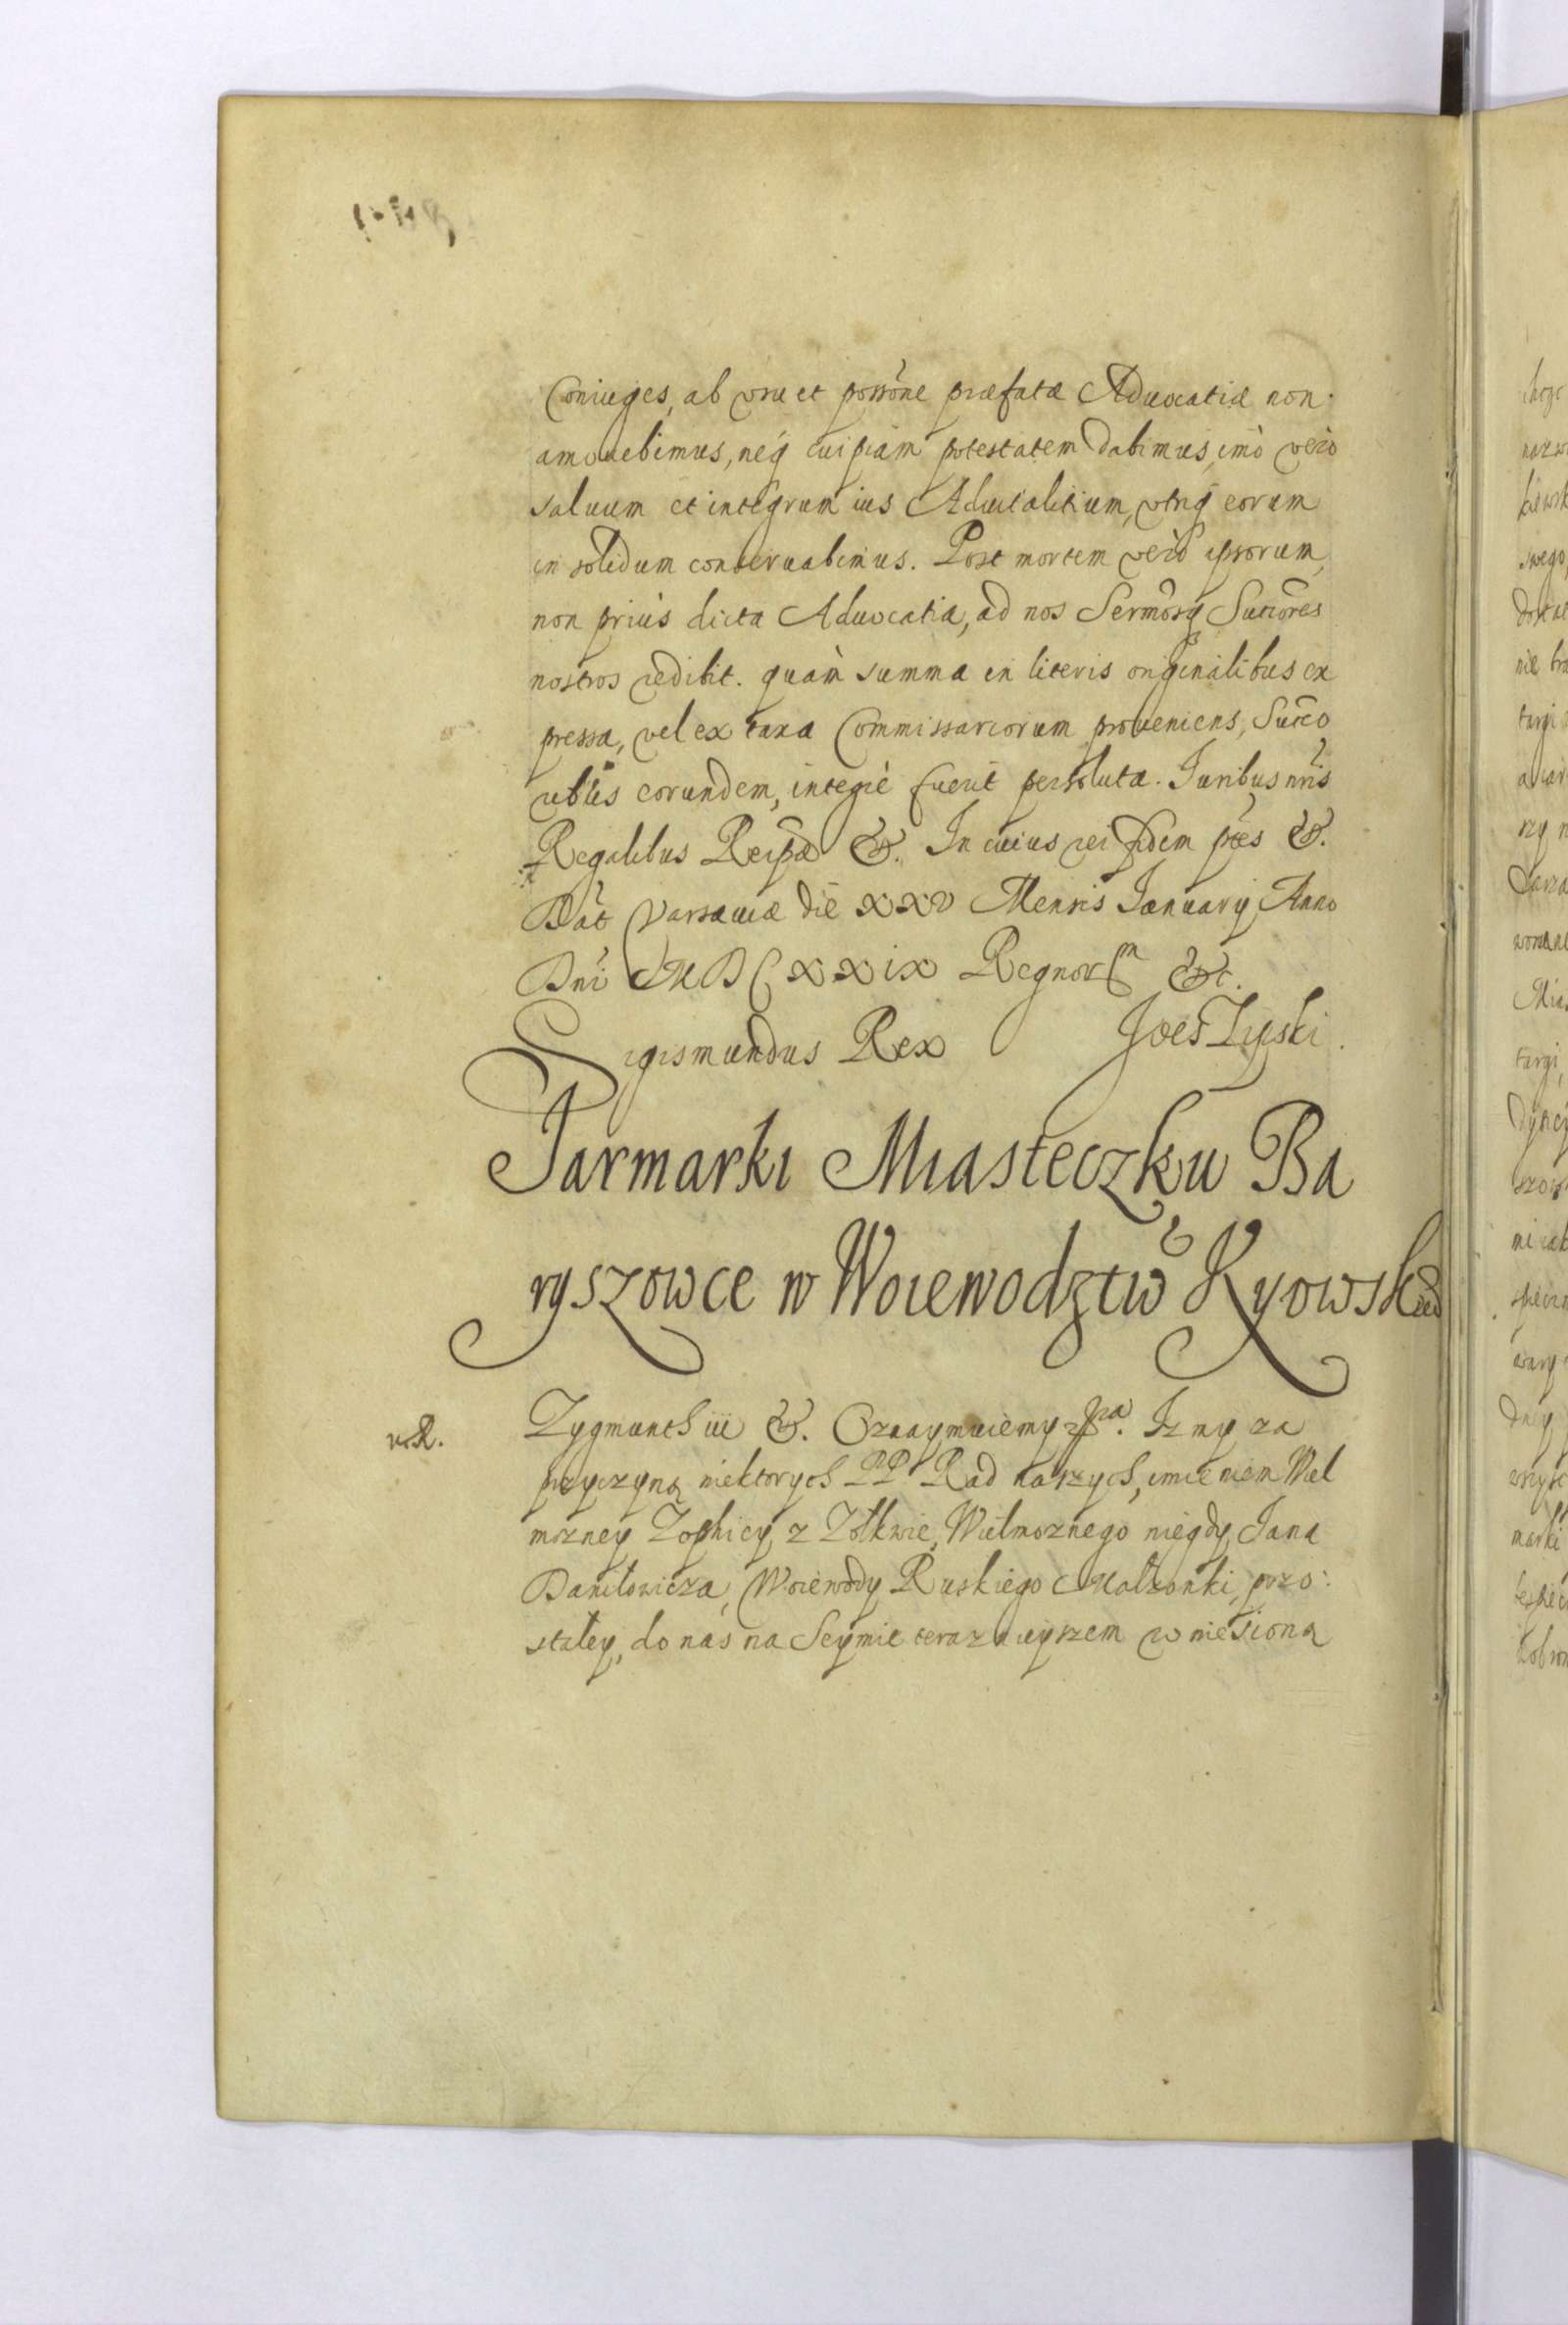 Coniuges, ab usu et possõne præfatæ Aduocatiæ non
amouebimus, neq cuipiam potestatem dabimus, imò verò
saluum et integrum ius Aduitalitium, utriq eorum
in solidum conseruabimus. Post mortem verò ipsorum,
non priùs dicta Aduocatia, ad nos Sermosq Succõres
nostros redibit. quàm summa in literis originalibus ex
pressa, vel ex taxa Commissariorum proueniens, Succo
ribus eorundem, integrè fuerit persoluta. Iuribus nris
Regalibus Reipæ &. In cuius rei fidem pres &.
Dat Varsauiæ die XXV Mensis Ianuarij Anno
Dni MDCXXIX Regnorm &c.
Sigismundus Rex Joes Lipski.
Jarmarki Miasteczku Ba
ryszowce w Woiewodztw Kyowskie
Zygmunth iii &. Oznaymuiemy. Iz my za
przyczyną niektorych PP Rad naszych, imieniem Wiel
mozney Zophiey z Zołkwie, Wielmoznego niegdy Jana
Daniłowicza, Woiewody Ruskiego Małzonki, pozo:
stałey, do nas na Seymie teraznieyszem wniesioną